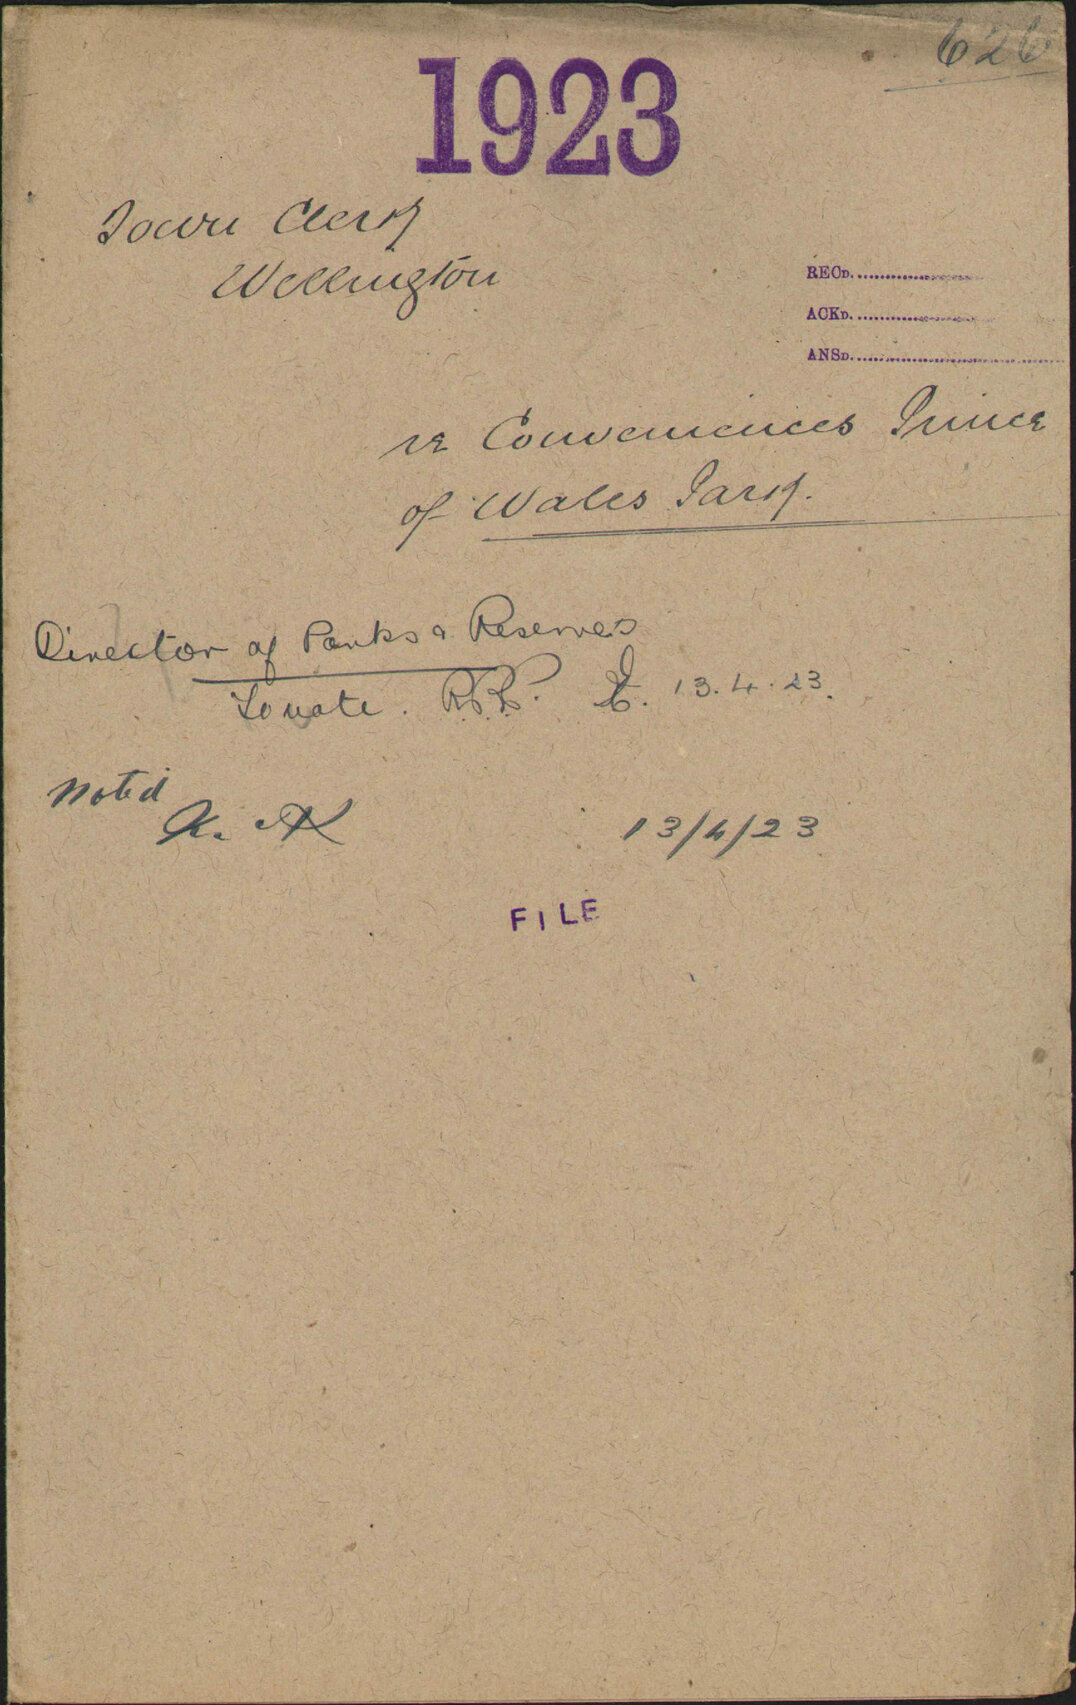 626
1923
Town Clerk
Wellington
RECD.
ACKD.
ANSD.
re Conveniences Prince
of Wales Park.
Director of Parks & Reserves
To note. 13.4.23.
Noted
13/4/23
FILE